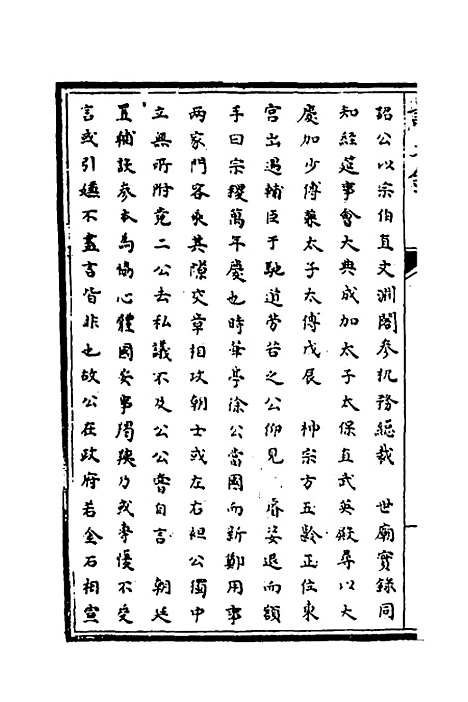 詔公以宗伯直文淵閣參机務總裁　世廟實錄同
知經筵事會大典成加太子太保直武英殿尋以大
慶加少傅兼太子太傅戊辰　神宗方五齡正位東
宮出遇輔臣于馳道勞苦之公仰見　睿姿退而額
手曰宗稷萬年慶也時華亭徐公當國而新鄭用事
两家門客乘其隙交章相攻朝士或左右袒公獨中
立無所附竟二公去私議不及公公嘗自言　朝廷
置輔誤參本為協心體國矣事獨
言或引嫌不盡言皆非也故公在政府若金石相宣